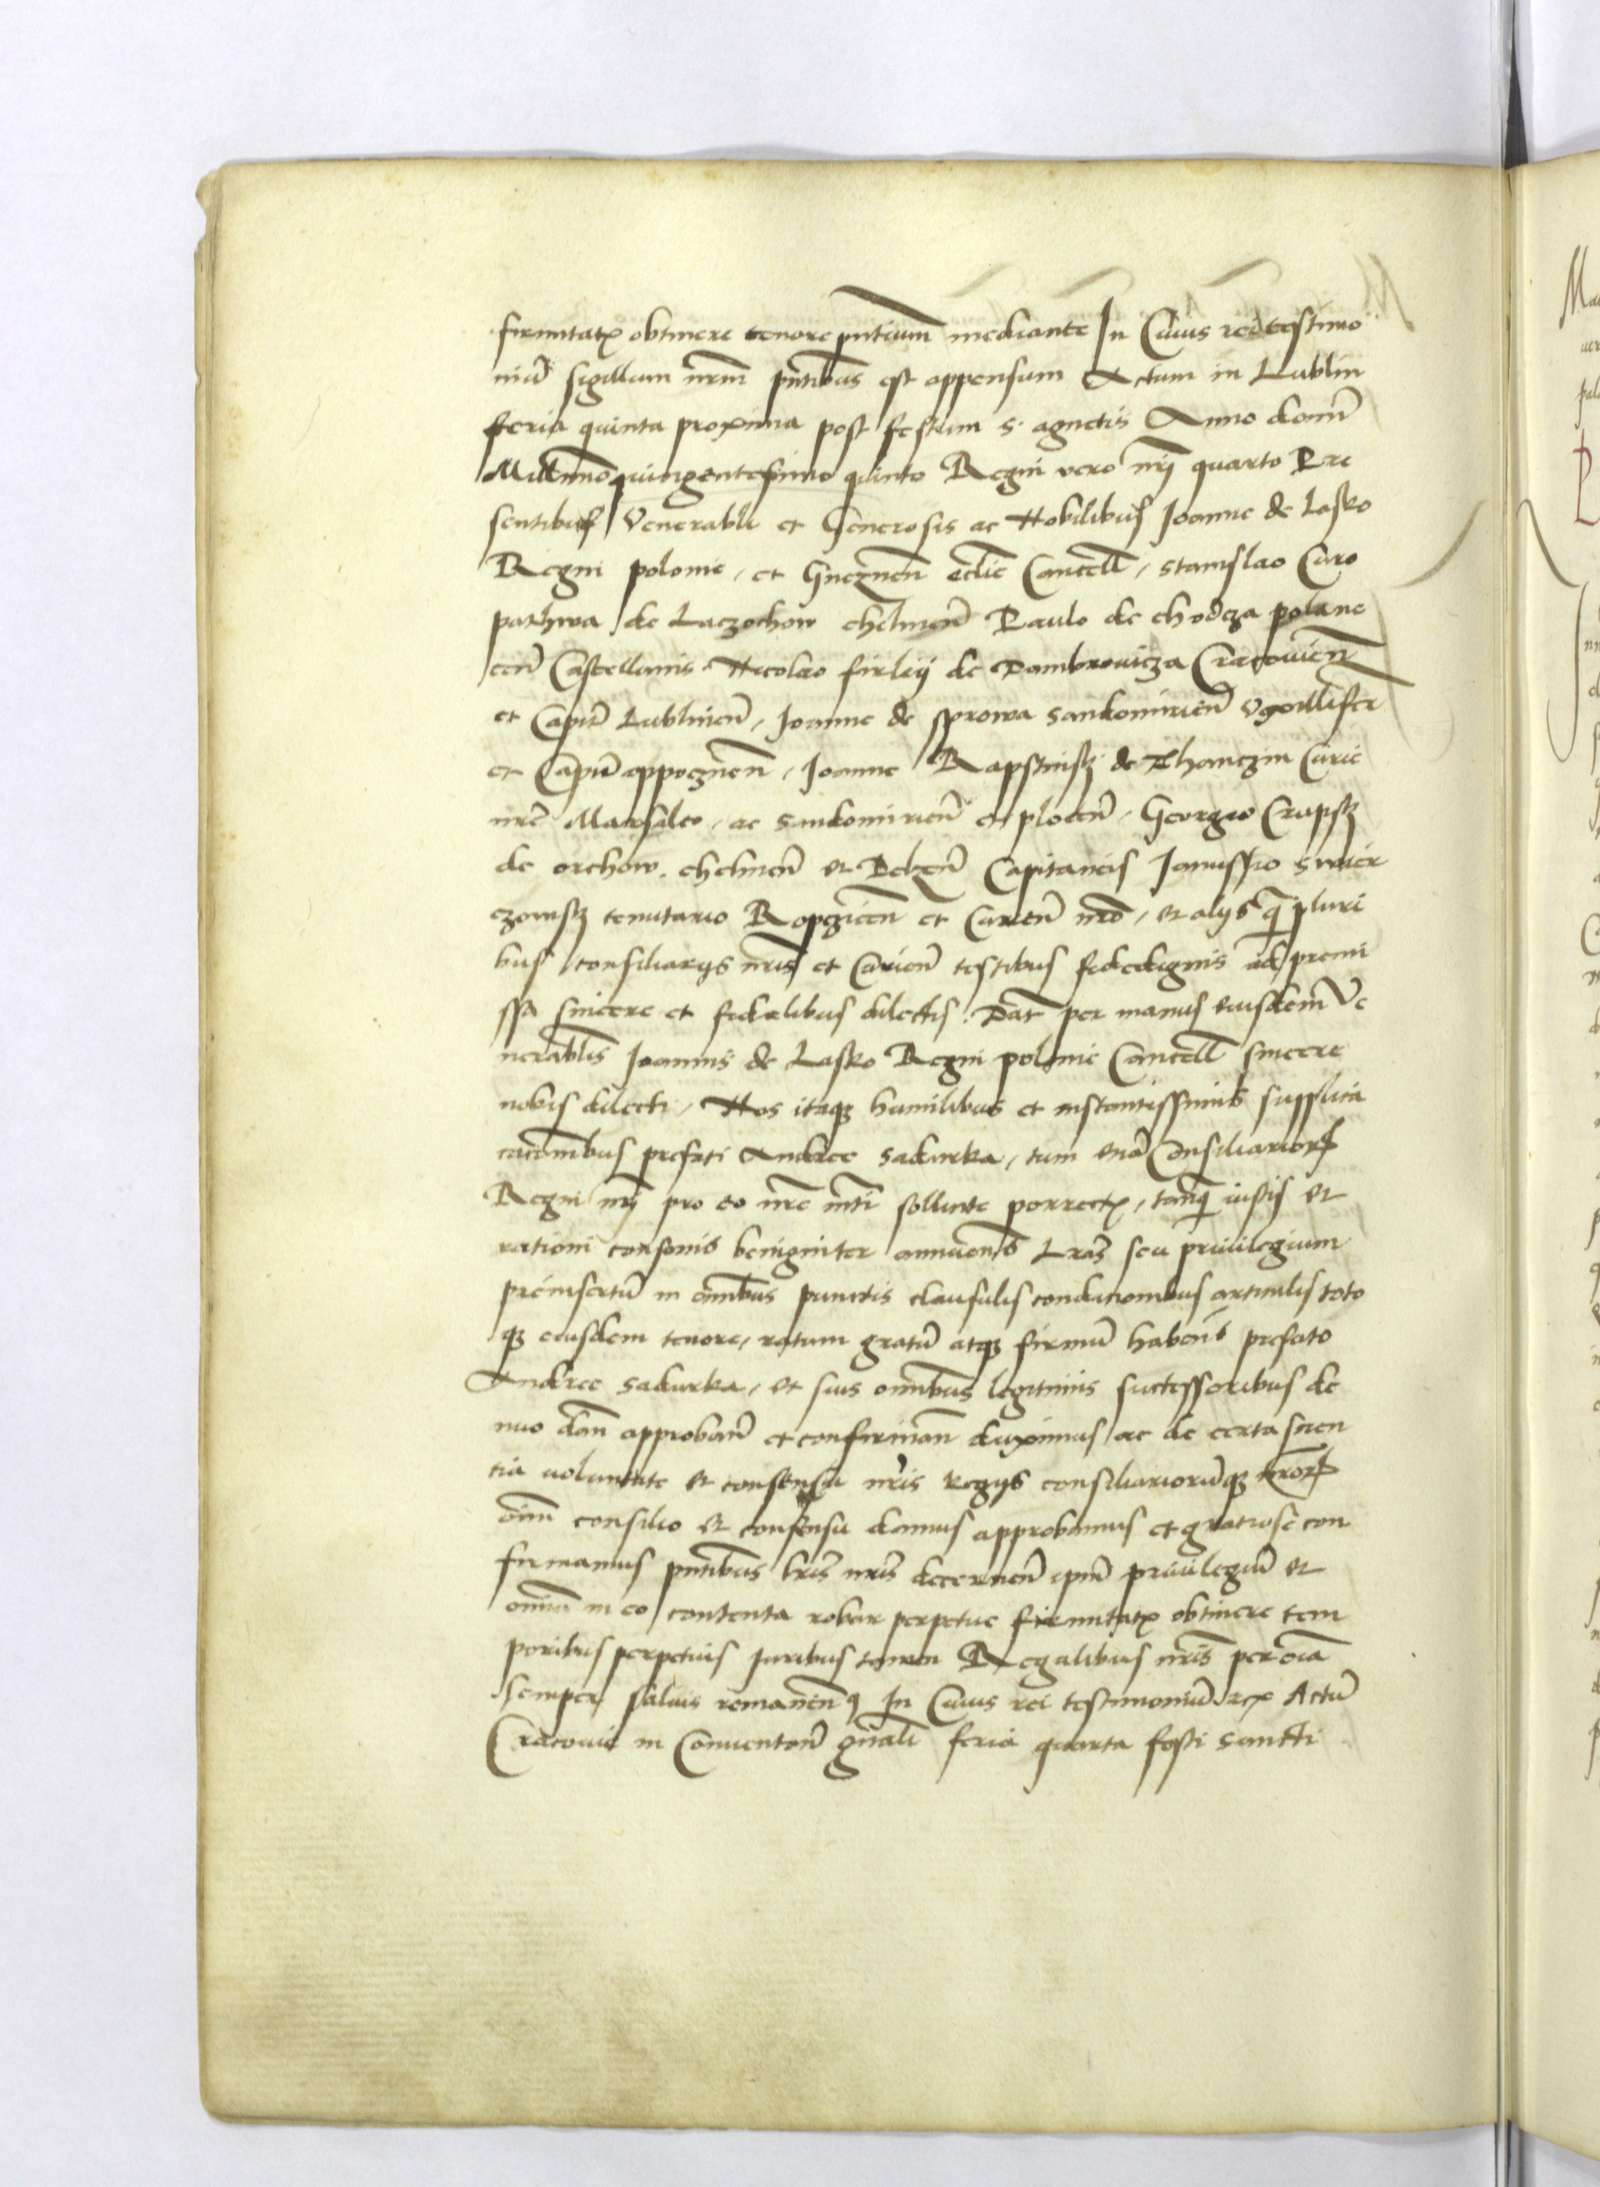 firmitatẽ obtinere tenore pñtium mediante In Cuius rei testimo
niũ sigillum nrm̃ pñtibus est appensum Actum in Lublin
feria quinta proxima post festum s. agnetis Anno domĩ
Millmo quingentesimo quinto Regni vero nrj̃ quarto Pre
sentibus Venerabli et Generosis ac Nobilibus Joanne de Lasko
Regni polonie, et Gneznen̄ eclie Cancell̃, stanislao Curo
pathwa de Laczochow chelmen̄ Paulo de chodcza polane
cen̄ Castellanis Nicolao firleij de Dambrowicza Cracouien̄
et Capit̃ Lublinien̄, Joanne de sprowa sandomirien̄ vexillifer
et Capit̃ oppocznen̄, Joanne Rapstinskj de Thanczin Curie
nrẽ Marsalco, ac sandomirien̄ et plocen̄, Georgio Crupskj
de orchow. chelmen̄ et Belzen̄ Capitaneis Janussio swier
czowskj tenutario Ropczicen̄ et Curien̄ nrõ, et alijs q̃ pluri
bus consiliarijs nris̃ et Curien̄ testibus fidedignis ad premi
ssa sincere et fidelibus dilectis. Dat̃ per manus eiusdem Ve
nerablis Joannis de Lasko Regni polonie Cancell̃ sincere
nobis dilecti, Nos itaqꝫ humilibus et instantissimis supplica
cacõnibus prefati Andree sadurka, tum etiã Consiliarioꝝ
Regni nrj̃ pro eo nrẽ mti̊ sollicite porrectꝭ, tamq̃ iustis et
rationi consonis benigniter annuen̄s Lrãs seu priuilegium
preinsertũ in omĩbus punctis clausulis condicionibus articulis toto
qꝫ eiusdem tenore, ratum gratũ atqꝫ firmũ haben̄s prefato
Andree sadurka, et suis omĩbus legitimis successoribus de
nuo dan̄ approban̄ et confirman̄ duximus ac de certa scien
tia voluntate et consensu nrĩs Regijs consiliariorũqꝫ nr̃oꝝ
oĩm consilio et consensu damus approbamus et gratiose con
firmamus pñtibus lrĩs nrĩs decernen̄ ipm̃ priuilegiũ et
omnia in eo contenta robur perpetue firmitatꝭ obtinere tem
poribus perpetuis Juribus tamen Regalibus nrĩs per oĩa
semper saluis remanen̄ In Cuius rei testimoniũ rex Actũ
Cracouie in Conuentõne gñali feria quarta festi sancti